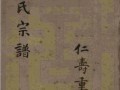 仁壽重
氏宗譜